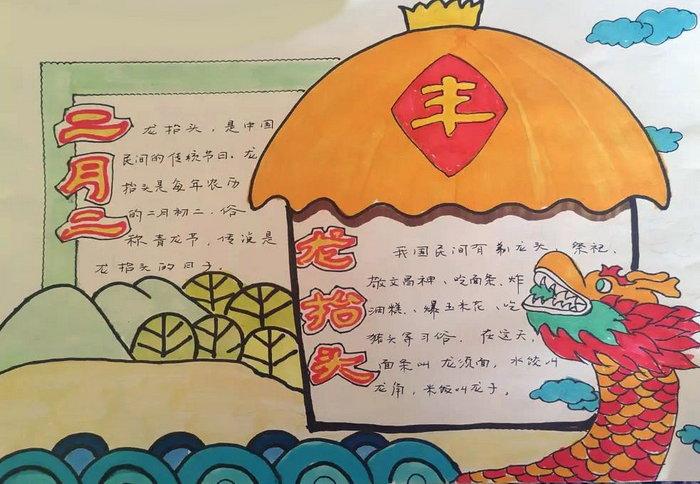 丰
二月二
龙抬头，是中国
民间的传统节日。龙
抬头是每年农历
的二月初二，俗
称青龙节，传说是
龙抬头的日子。
龙抬头
我国民间有剃龙头、祭祀、
敬文昌神、吃面条、炸
油糕、爆玉米花、吃
猪头等习俗，在这天，
面条叫龙须面，水饺叫
龙角，米饭叫龙子。